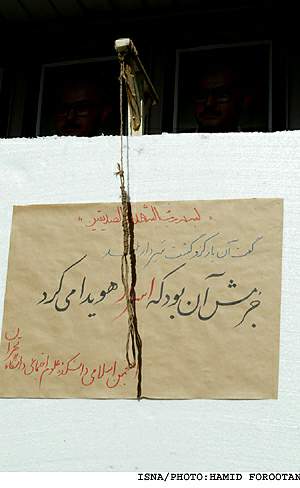 «بسم رب الشهدا و الصدیقین»
گفت آن یار کزو گشت سر دار بلند
جرمش آن بود که اسرار هویدا می کرد
انجمن اسلامی دانشکده علوم اجتماعی دانشگاه تهران
ISNA/PHOTO:HAMID FOROOTAN